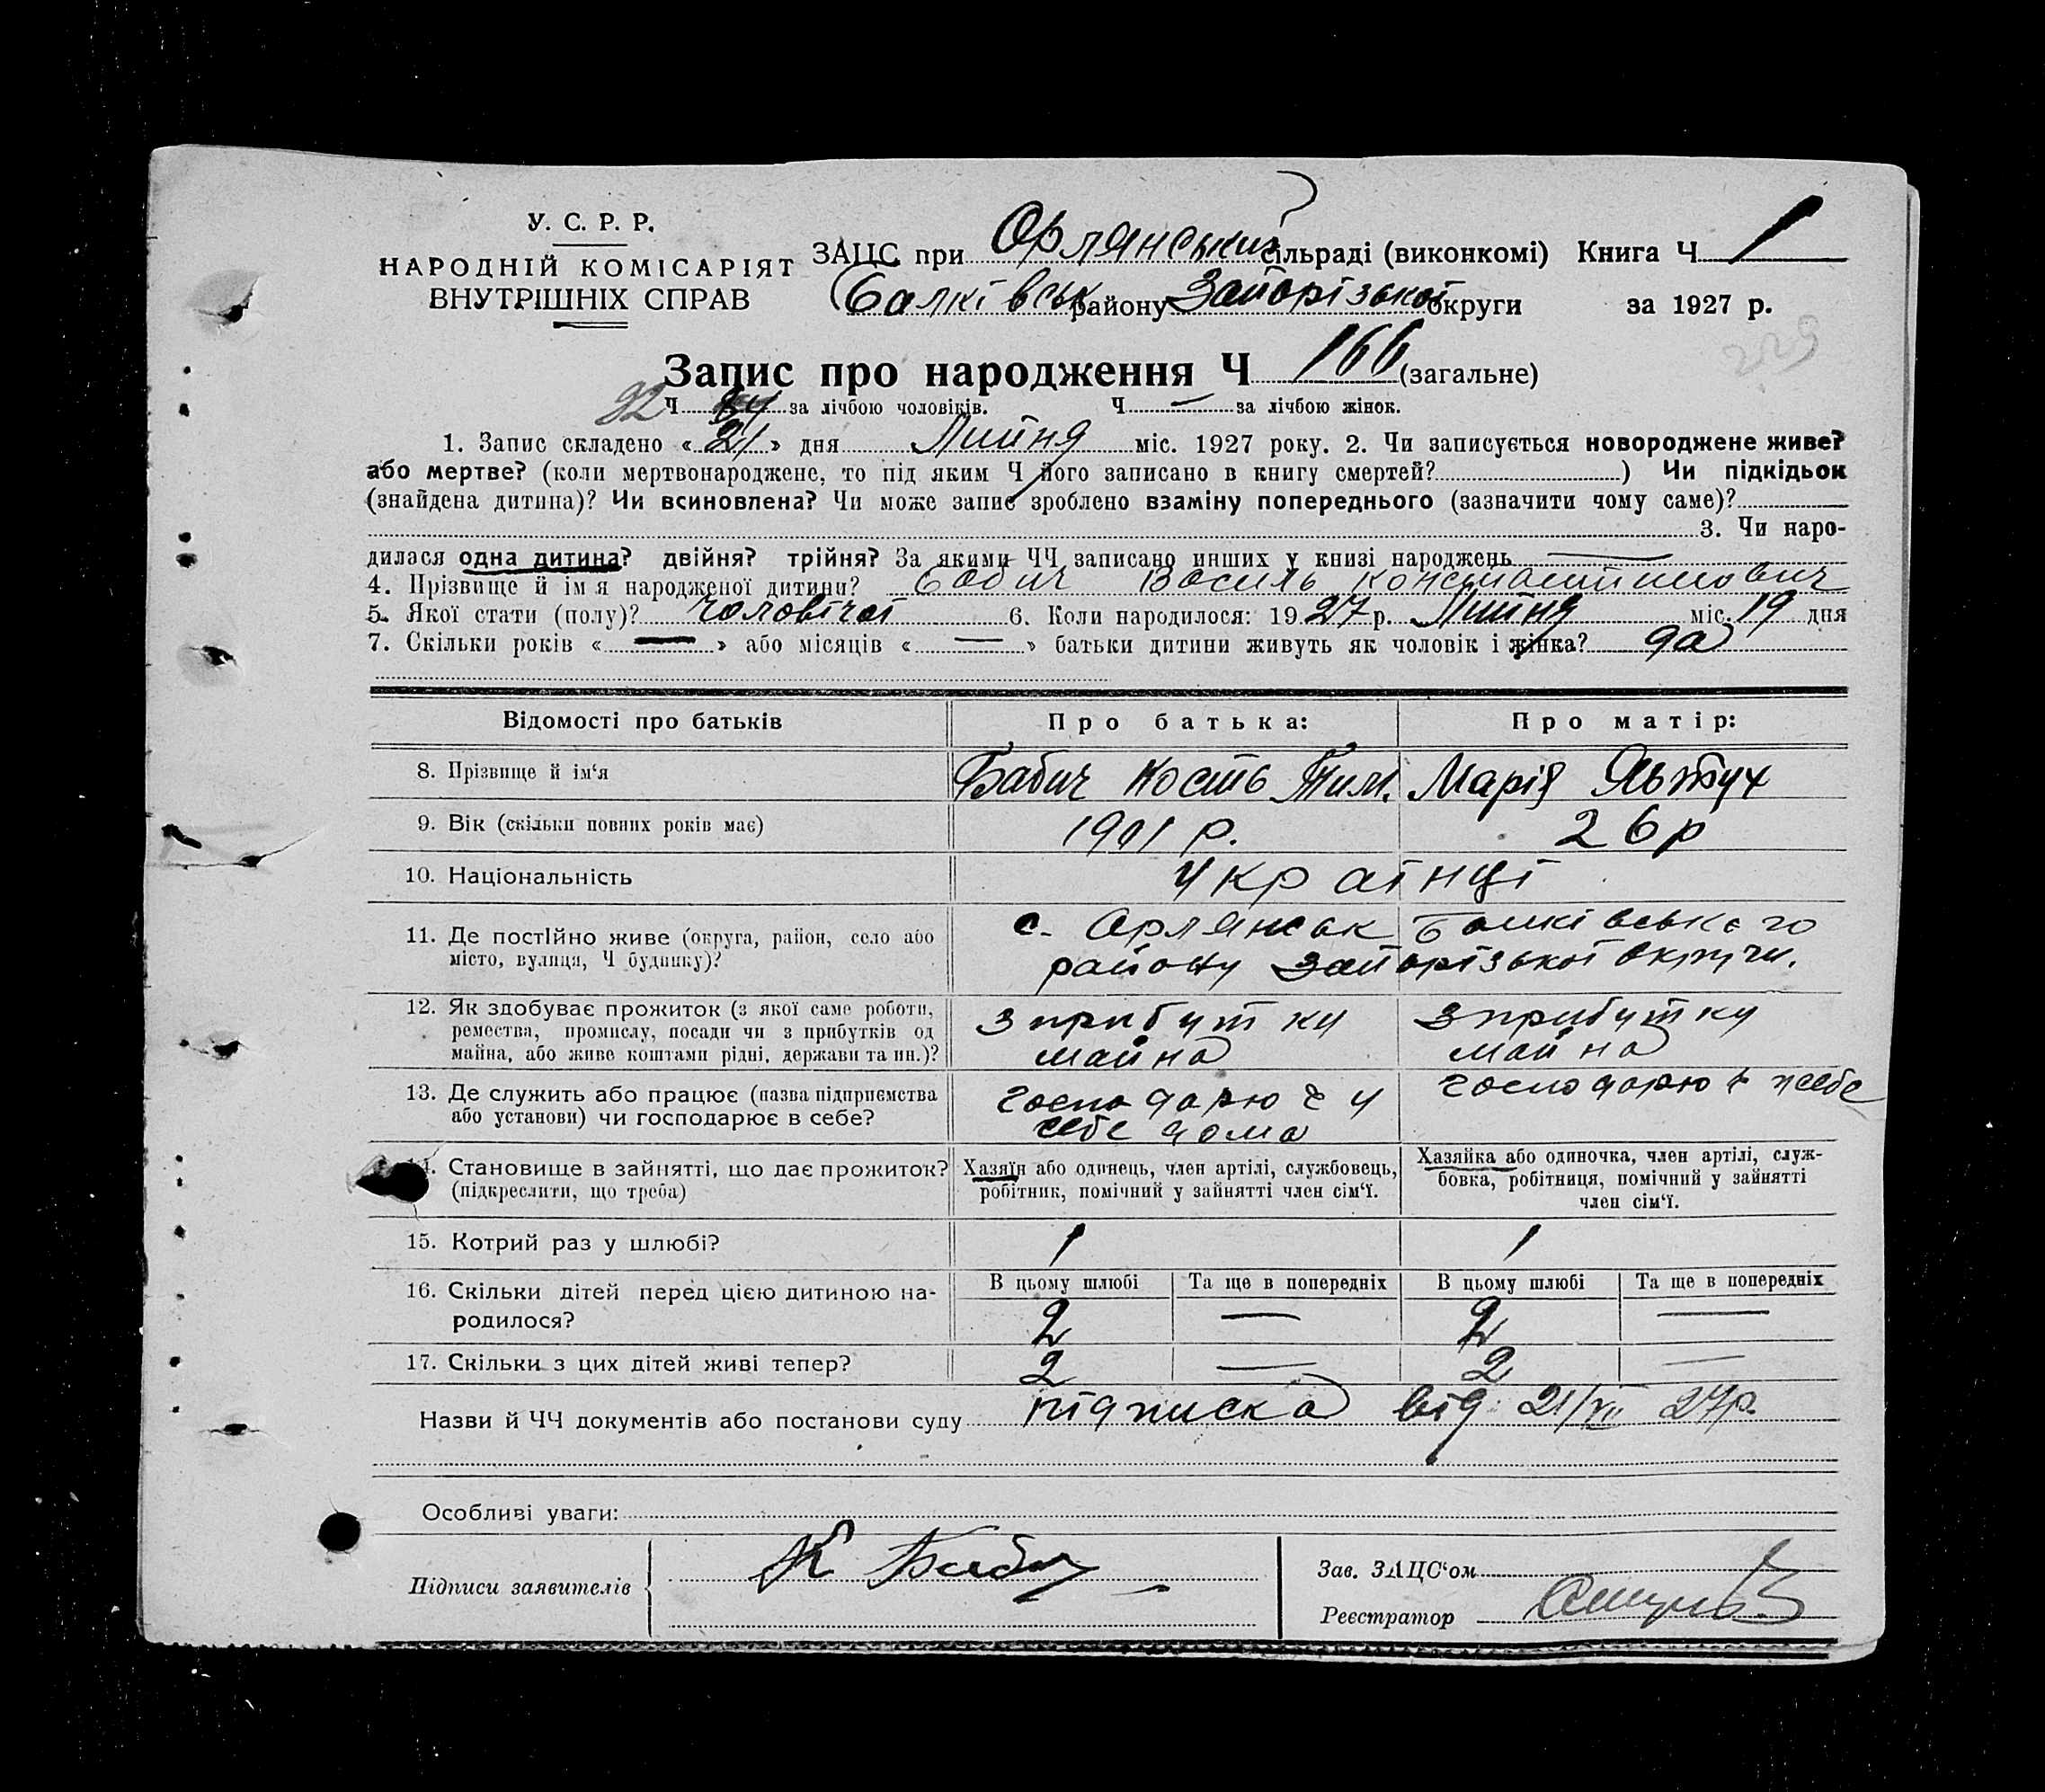 У. С. Р. Р.
НАРОДНІЙ КОМІСАРІЯТ
ВНУТРІШНІХ СПРАВ
ЗАЦС при Орлянський сільраді (виконкомі) Книга Ч 1
Балківськ району Запорізької округи за 1927 р.
229
Запис про народження Ч 166 (загальне)
92 Ч за лічбою чоловіків. Ч — за лічбою жінок.
1. Запис складено « 21 » дня Липня міс. 1927 року. 2. Чи записується новороджене живе?
або мертве? (коли мертвонароджене, то під яким Ч його записано в книгу смертей? ) Чи підкідьок
(знайдена дитина)? Чи всиновлена? Чи може запис зроблено взаміну попереднього (зазначити чому саме)?
3. Чи наро-
дилася одна дитина? двійня? трійня? За якими ЧЧ записано инших у книзі народжень —
4. Прізвище й ім'я народженої дитини? Бабич Василь Константинович
5. Якої стати (полу)? чоловічої 6. Коли народилося: 1927 р. Липня міс. 19 дня
7. Скільки років « — » або місяців « — » батьки дитини живуть як чоловік і жінка? да
Відомості про батьків Про батька: Про матір:
8. Прізвище й ім'я Бабич Кость Тим. Марія Явтух
9. Вік (скільки повних років має) 1901 р. 26 р
10. Національність українці
11. Де постійно живе (округа, район, село або
місто, вулиця, Ч будинку)?
с. Орлянськ Балківського
району Запорізької округи.
12. Як здобуває прожиток (з якої саме роботи,
ремества, промислу, посади чи з прибутків од
майна, або живе коштами рідні, держави та ин.)?
з прибутку майна
з прибутку майна
13. Де служить або працює (назва підприємства
або установи) чи господарює в себе?
господарює у
себе дома
господарює у себе
14. Становище в зайнятті, що дає прожиток?
(підкреслити, що треба)
Хазяїн або одинець, член артілі, службовець,
робітник, помічний у зайнятті член сім'ї.
Хазяйка або одиночка, член артілі, служ-
бовка, робітниця, помічний у зайнятті
член сім'ї.
15. Котрий раз у шлюбі? 1 1
В цьому шлюбі Та ще в попередніх В цьому шлюбі Та ще в попередніх
16. Скільки дітей перед цією дитиною на-
родилося? 2 — 2 —
17. Скільки з цих дітей живі тепер? 2 — 2 —
Назви й ЧЧ документів або постанови суду підписка від 21/VII 27р.
Особливі уваги:
Підписи заявителів К Бабич
Зав. ЗАЦС'ом
Реєстратор